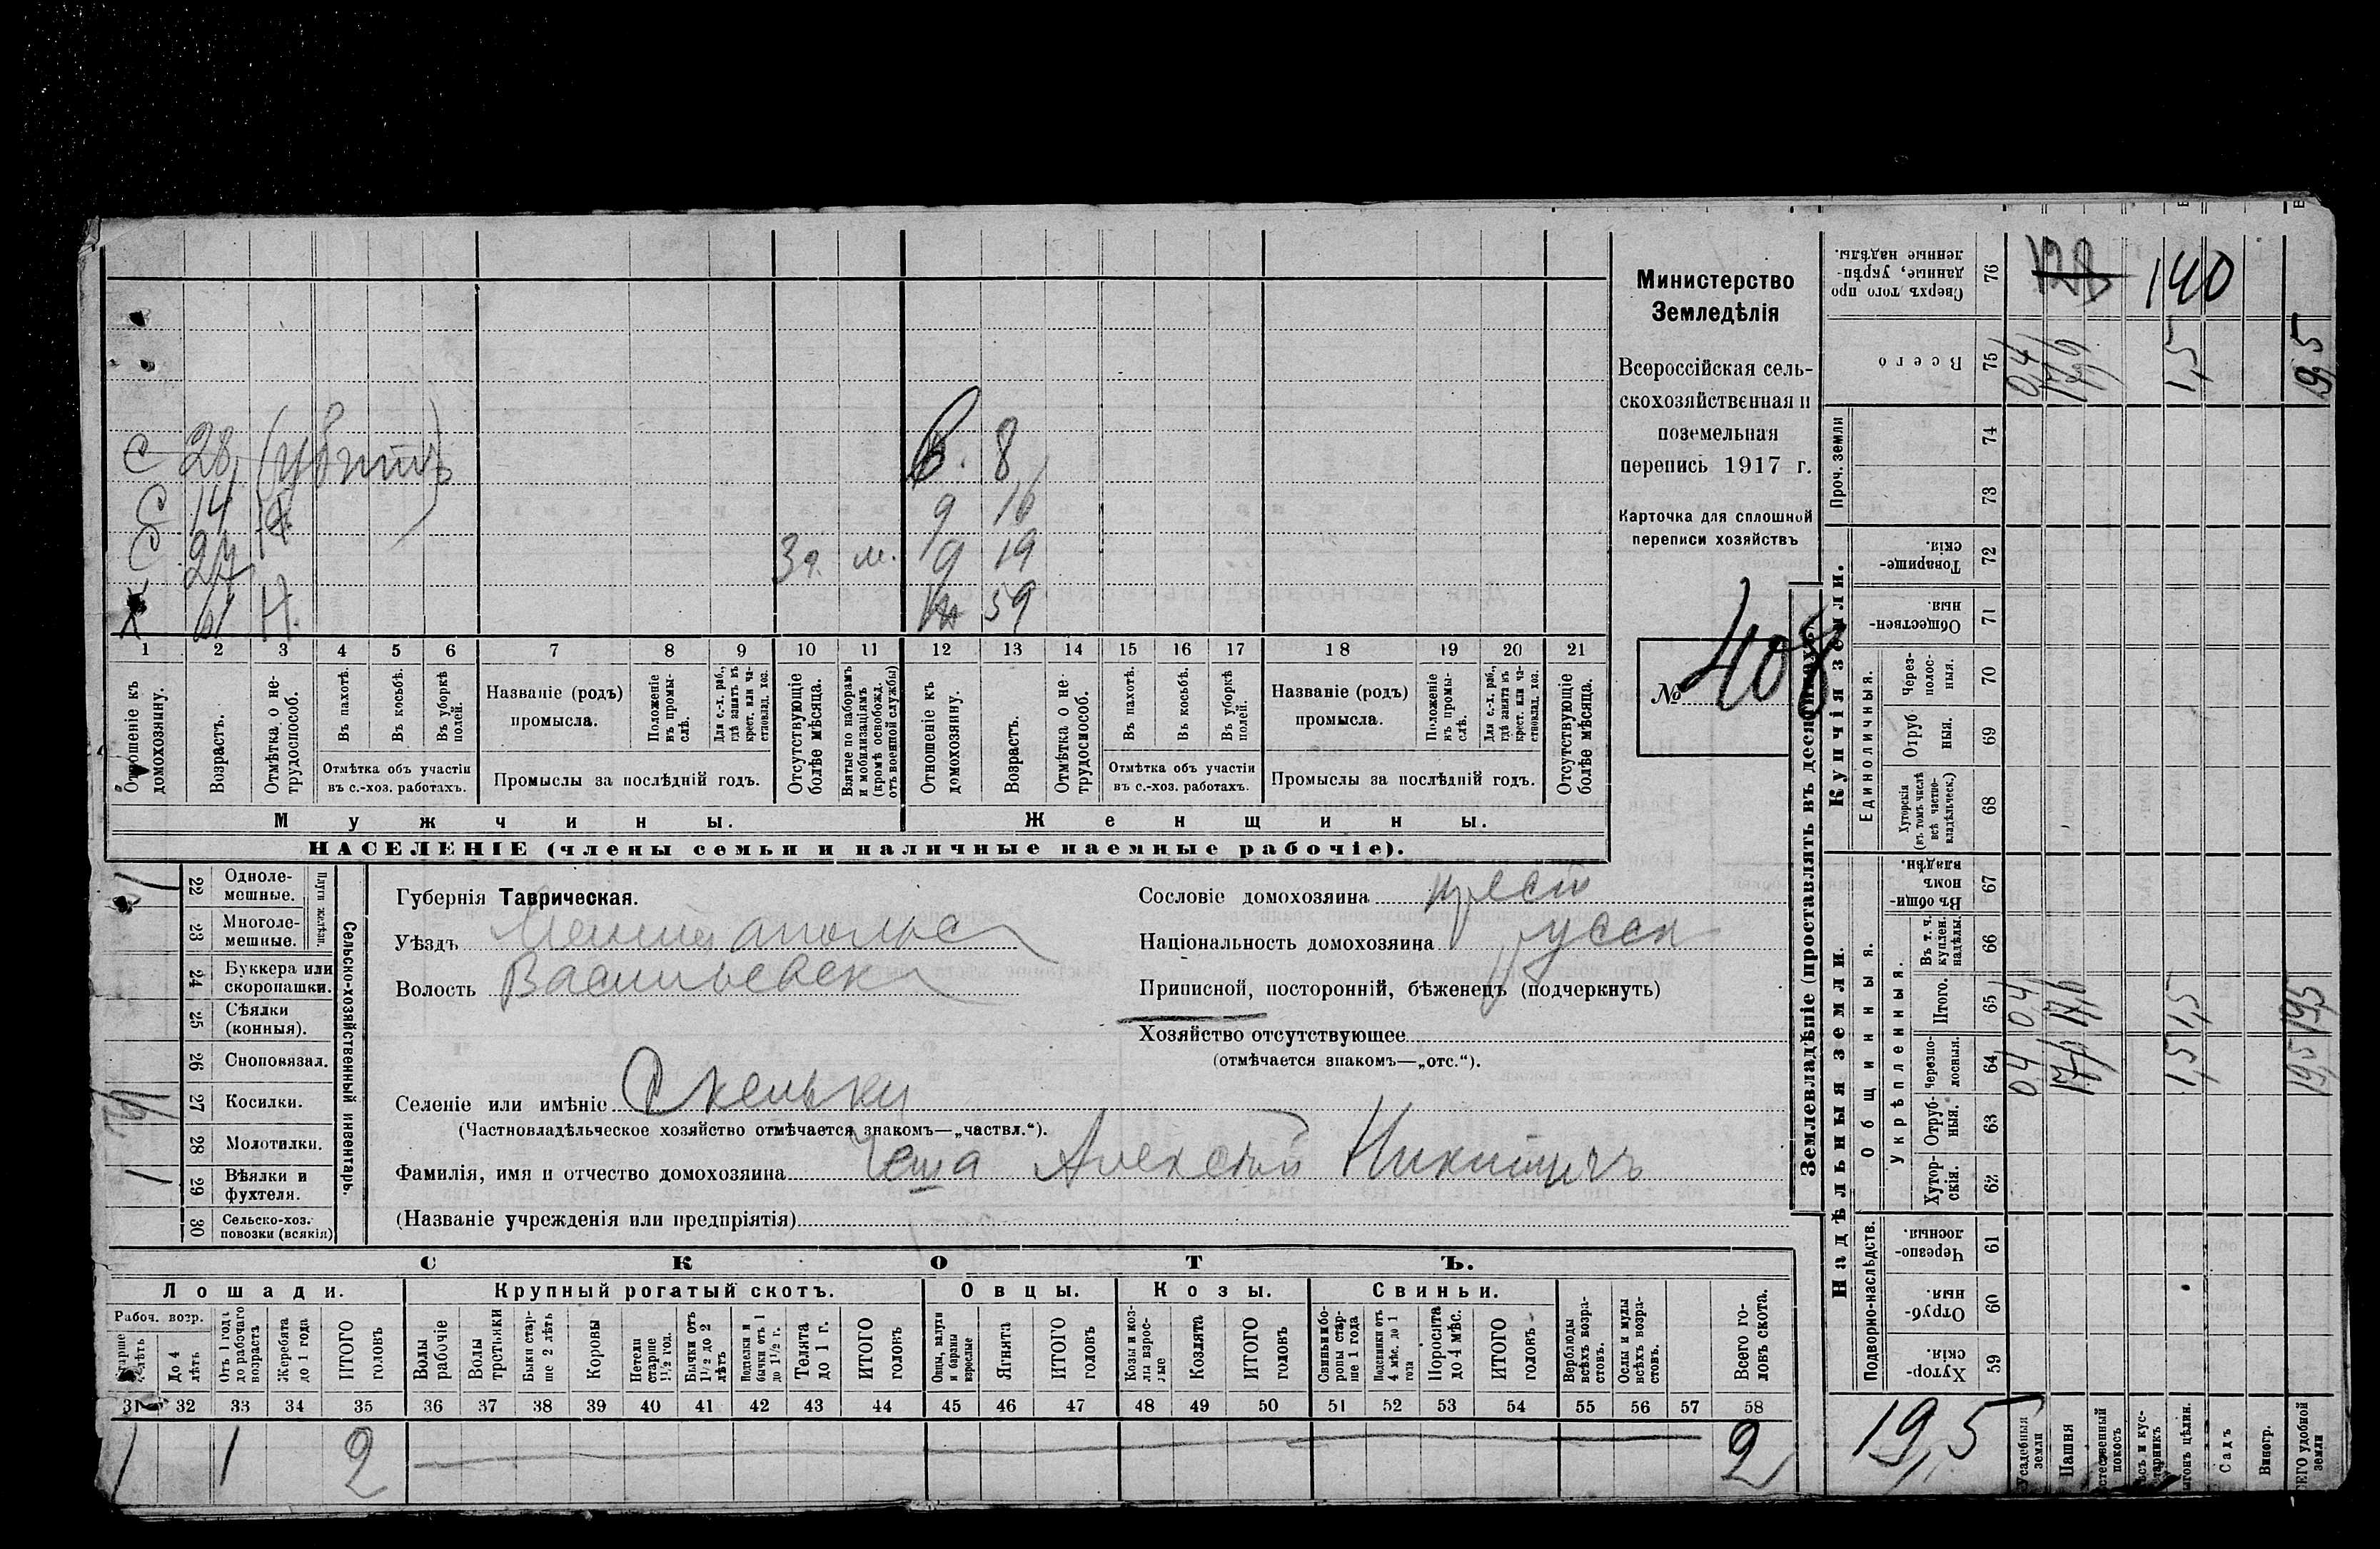 с 28 (убитъ)
с 14
с
х 61 Н.
3 г. м.
в. 8
д 16
д 19
ж 59
1 2 3 4 5 6 7 8 9 10 11 12 13 14 15 16 17 18 19 20 21
Отношеніе къ домохозяину.
Возрастъ.
Отмѣтка о нетрудоспособ.
Въ пахотѣ.
Въ косьбѣ.
Въ уборкѣ полей.
Отмѣтка объ участіи въ с.-хоз. работахъ.
Названіе (родъ) промысла.
Положеніе въ промыслѣ.
Для с.-х. раб., гдѣ занятъ въ крест. или частновлад. хоз.
Промыслы за послѣдній годъ.
Отсутствующіе болѣе мѣсяца.
Взятые по наборамъ и мобилизаціямъ (кромѣ освобожд. отъ военной службы)
Отношеніе къ домохозяину.
Возрастъ.
Отмѣтка о нетрудоспособ.
Въ пахотѣ.
Въ косьбѣ.
Въ уборкѣ полей.
Отмѣтка объ участіи въ с.-хоз. работахъ.
Названіе (родъ) промысла.
Положеніе въ промыслѣ.
Для с.-х. раб., гдѣ занята въ крест. или частновлад. хоз.
Промыслы за послѣдній годъ.
Отсутствующіе болѣе мѣсяца.
Мужчины.
Женщины.
НАСЕЛЕНІЕ (члены семьи и наличные наемные рабочіе).
Министерство
Земледѣлія
Всероссійская сель-
скохозяйственная и
поземельная
перепись 1917 г.
Карточка для сплошной
переписи хозяйствъ
№ 408
Сельско-хозяйственный инвентарь.
Плуги желѣзн.
1 22 Однолемешные.
23 Многолемешные.
24 Буккера или скоропашки.
25 Сѣялки (конныя).
26 Сноповязал.
27 Косилки.
28 Молотилки.
1 29 Вѣялки и фухтеля.
30 Сельско-хоз. повозки (всякія)
Губернія Таврическая.
Уѣздъ Мелитопольс
Волость Васильевск
Сословіе домохозяина крест
Національность домохозяина русск
Приписной, посторонній, бѣженецъ (подчеркнуть)
Хозяйство отсутствующее
(отмѣчается знакомъ—„отс.“).
Селеніе или имѣніе Скельки
(Частновладѣльческое хозяйство отмѣчается знакомъ—„частвл.“).
Фамилія, имя и отчество домохозяина Алексѣй Никитичъ
(Названіе учрежденія или предпріятія)
СКОТЪ.
Лошади. Крупный рогатый скотъ. Овцы. Козы. Свиньи.
Рабоч. возр.
До 4 лѣтъ
Отъ 1 года до рабочаго возраста
Жеребята до 1 года
ИТОГО головъ
Волы рабочіе
Волы третьяки
Быки старше 2 лѣтъ
Коровы
Нетели старше 1½ год.
Бычки отъ 1½ до 2 лѣтъ
Подтелки и бычки отъ 1 до 1½ г.
Телята до 1 г.
ИТОГО головъ
Овцы, валухи и бараны взрослые
Ягнята
ИТОГО головъ
Козы и козлы взрослые
Козлята
ИТОГО головъ
Свиньи и боровы старше 1 года
Подсвинки отъ 4 мѣс. до 1 года
Поросята до 4 мѣс.
ИТОГО головъ
Верблюды всѣхъ возрастовъ.
Ослы и мулы всѣхъ возрастовъ.
Всего головъ скота.
31 32 33 34 35 36 37 38 39 40 41 42 43 44 45 46 47 48 49 50 51 52 53 54 55 56 57 58
1 1 2 2
Землевладѣніе (проставлять въ десятинахъ)
Купчія земли.
Надѣльныя земли.
Проч. земли
Единоличныя.
Общинныя.
Укрѣпленныя.
Подворно-наслѣдств.
Сверхъ того проданные, укрѣпленные надѣлы. 76 140
Всего 75 0,4 1,5 19,5
74
73
Товарищескія. 72
Общественныя. 71
Черезполосныя. 70
Отрубныя. 69
Хуторскія (въ томъ числѣ всѣ частновладѣльческ.) 68
Въ общинномъ владѣн. 67
Въ т. ч. куплен. надѣлы. 66
Итого. 65 0,4 17,6 1,5 19,5
Черезполосныя. 64 0,4 17,6 1,5 19,5
Отрубныя. 63
Хуторскія. 62
Черезполосныя 61
Отрубныя. 60
Хуторскія. 59
19,5
Усадебныя земли
Пашня
Естественный покосъ
Лѣсъ и кустарникъ
Выгонъ цѣлин.
Садъ
Виногр.
ВСЕГО удобной земли